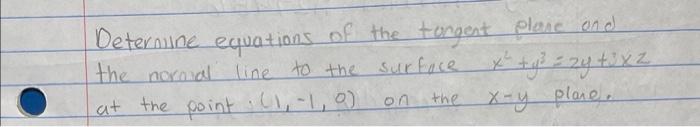 Determine equations of the tangent plane and
the normal line to the surface x² + y³ = 2y + 3xz
at the point : (1, -1, 0) on the x-y plane.